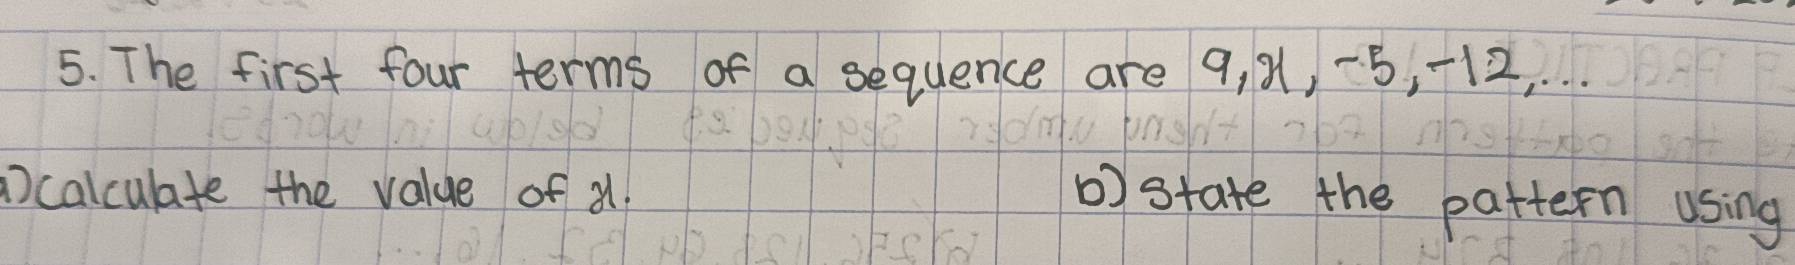 5. The first four terms of a sequence are 9, x, -5, -12, ...
a) calculate the value of x. b) state the pattern using